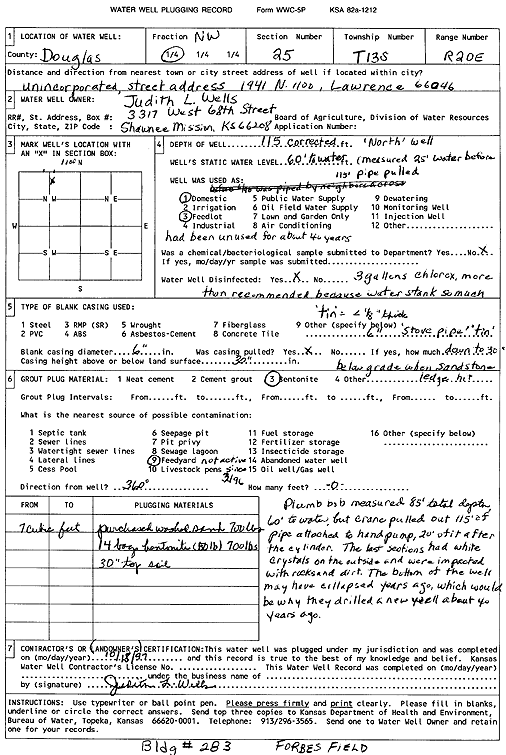 WATER WELL PLUGGING RECORD Form WWC-5P KSA 82a-1212
1 LOCATION OF WELL: Fraction NW Section Number Township Number Range Number
County: Douglas 1/4 1/4 1/4 25 T13S R20E
Distance and direction from nearest town or city street address of well if located within city?
unincorporated, street address 1941 N. 1100, Lawrence 66046
2 WATER WELL OWNER: Judith L. Wells
RR#, St. Address, Box #: 3317 West 68th Street Board of Agriculture, Division of Water Resources
City, State, ZIP Code : Shawnee Mission, KS 66208 Application Number:
3 MARK WELL'S LOCATION WITH AN "X" IN SECTION BOX:
1100 N
N W N E
W E
S W S E
S
4 DEPTH OF WELL 115 corrected ft. 'North' well
WELL'S STATIC WATER LEVEL 60' to water (measured 25' water before
115' pipe pulled
WELL WAS USED AS:
1 Domestic 5 Public Water Supply 9 Dewatering
2 Irrigation 6 Oil Field Water Supply 10 Monitoring Well
3 Feedlot 7 Lawn and Garden Only 11 Injection Well
4 Industrial 8 Air Conditioning 12 Other
had been unused for about 40 years
Was a chemical/bacteriological sample submitted to Department? Yes....No.X
If yes, mo/day/yr sample was submitted
Water Well Disinfected: Yes..X.. No..... 3 gallons chlorox, more
than recommended because water stank so much
5 TYPE OF BLANK CASING USED: 'tin' = < 1/8" thick
1 Steel 3 RMP (SR) 5 Wrought 7 Fiberglass 9 Other (specify below)
2 PVC 4 ABS 6 Asbestos-Cement 8 Concrete Tile 6" 'stove pipe' 'tin'
Blank casing diameter 6" in. Was casing pulled? Yes.X. No..... If yes, how much down to 30"
Casing height above or below land surface 30" in. below grade when sandstone
6 GROUT PLUG MATERIAL: 1 Neat cement 2 Cement grout 3 Bentonite 4 Other ledge hit
Grout Plug Intervals: From.....ft. to.....ft., From..... ft. to ....., From..... to.....ft.
What is the nearest source of possible contamination:
1 Septic tank 6 Seepage pit 11 Fuel storage 16 Other (specify below)
2 Sewer lines 7 Pit privy 12 Fertilizer storage
3 Watertight sewer lines 8 Sewage lagoon 13 Insecticide storage
4 Lateral lines 9 Feedyard not active 14 Abandoned water well
5 Cess Pool 10 Livestock pens since 15 Oil well/Gas well
3/96
Direction from well? 360° How many feet? -0-
FROM TO PLUGGING MATERIALS
7 cubic feet purchased washed sand 700 lbs
14 bags bentonite (50 lb) 700 lbs
30" top soil
Plumb bob measured 85' total depth,
60' to water, but crane pulled out 115' of
pipe attached to handpump, 20' of it after
the cylinder. The last sections had white
crystals on the outside and were impacted
with rocks and dirt. The bottom of the well
may have collapsed years ago, which would
be why they drilled a new well about 40
years ago.
7 CONTRACTOR'S OR LANDOWNER'S CERTIFICATION: This water well was plugged under my jurisdiction and was completed
on (mo/day/year) 10/18/97 and this record is true to the best of my knowledge and belief. Kansas
Water Well Contractor's License No. This Water Well Record was completed on (mo/day/year)
under the business name of
by (signature) Judith L. Wells
INSTRUCTIONS: Use typewriter or ball point pen. Please press firmly and print clearly. Please fill in blanks,
underline or circle the correct answers. Send top three copies to Kansas Department of Health and Environment,
Bureau of Water, Topeka, Kansas 66620-0001. Telephone: 913/296-3565. Send one to Water Well Owner and retain
one for your records.
Bldg # 283 FORBES FIELD